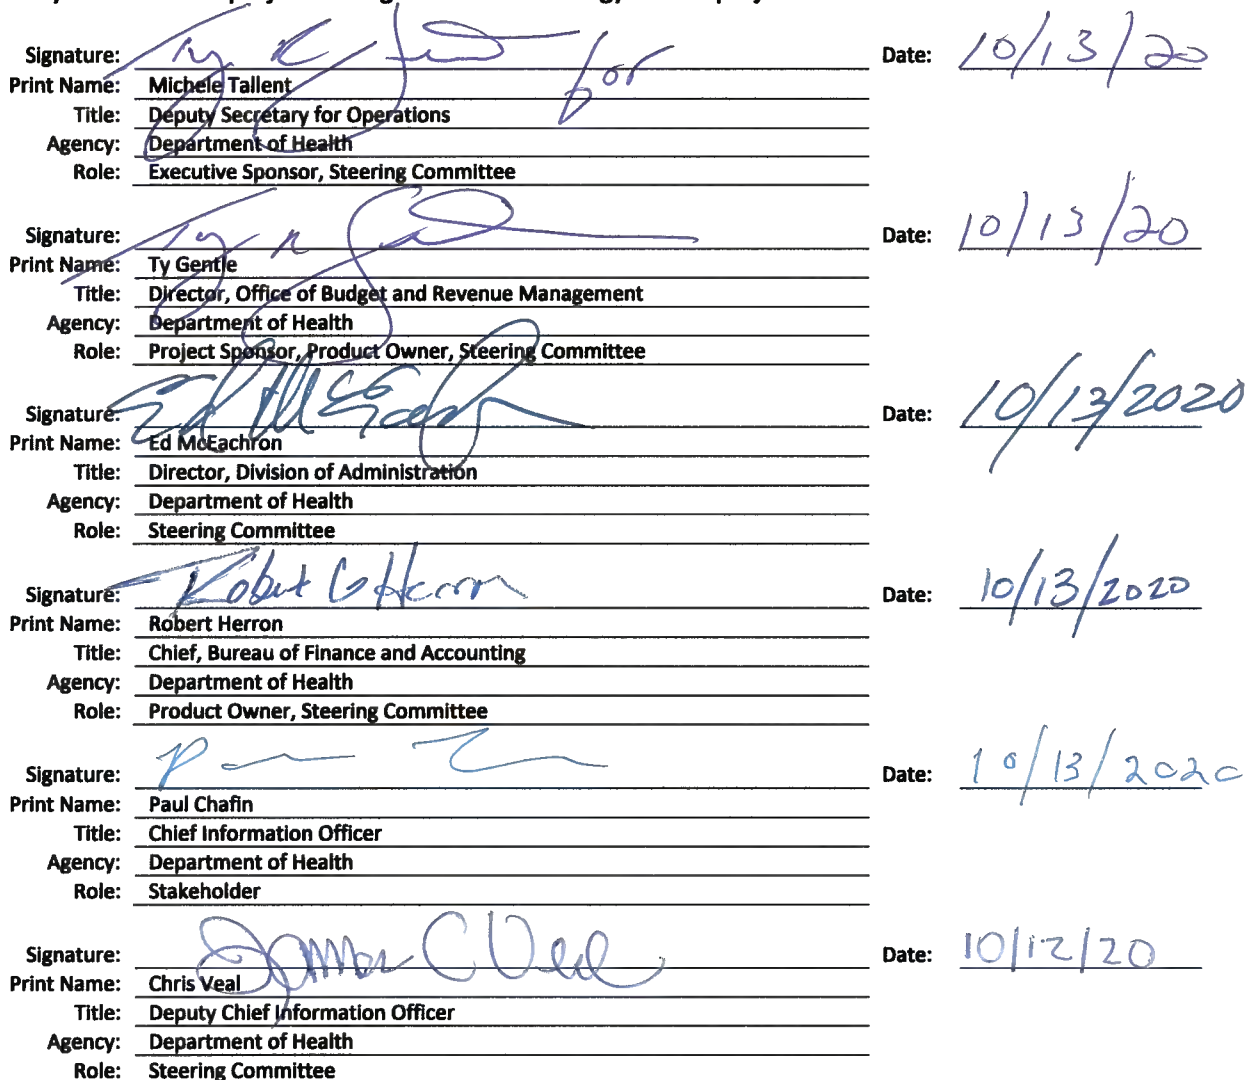 Signature: Ty R Gentle for Date: 10/13/20
Print Name: Michele Tallent
Title: Deputy Secretary for Operations
Agency: Department of Health
Role: Executive Sponsor, Steering Committee
Signature: Ty R Gentle Date: 10/13/20
Print Name: Ty Gentle
Title: Director, Office of Budget and Revenue Management
Agency: Department of Health
Role: Project Sponsor, Product Owner, Steering Committee
Signature: Ed McEachron Date: 10/13/2020
Print Name: Ed McEachron
Title: Director, Division of Administration
Agency: Department of Health
Role: Steering Committee
Signature: Robert G Herron Date: 10/13/2020
Print Name: Robert Herron
Title: Chief, Bureau of Finance and Accounting
Agency: Department of Health
Role: Product Owner, Steering Committee
Signature: Date: 10/13/2020
Print Name: Paul Chafin
Title: Chief Information Officer
Agency: Department of Health
Role: Stakeholder
Signature: C Veal Date: 10/12/20
Print Name: Chris Veal
Title: Deputy Chief Information Officer
Agency: Department of Health
Role: Steering Committee